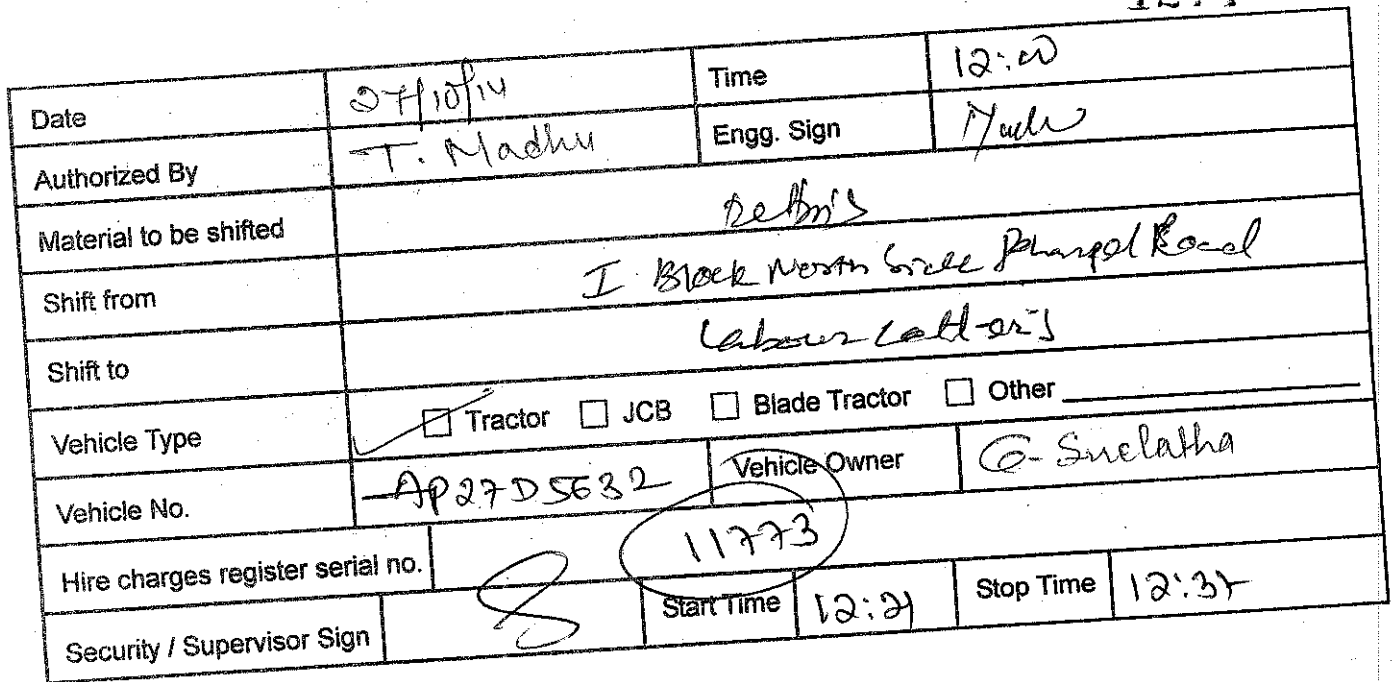 Date 27/10/14 Time 12:00
Authorized By T. Madhu Engg. Sign Madhu
Material to be shifted Debris
Shift from I Block North Side Road
Shift to Labour
Vehicle Type Tractor JCB Blade Tractor Other
Vehicle No. AP27D5632 Vehicle Owner G. Suelatha
Hire charges register serial no. 11773
Security / Supervisor Sign Start Time 12:21 Stop Time 12:37